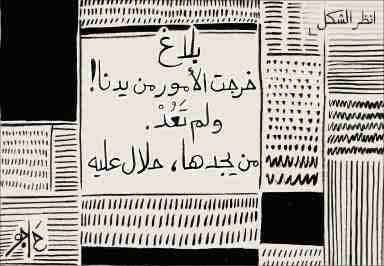 انظر الشكل
بلاغ
خرجت الأمور من يدنا!
ولم تَعُدْ.
من يجدها، حلال عليه